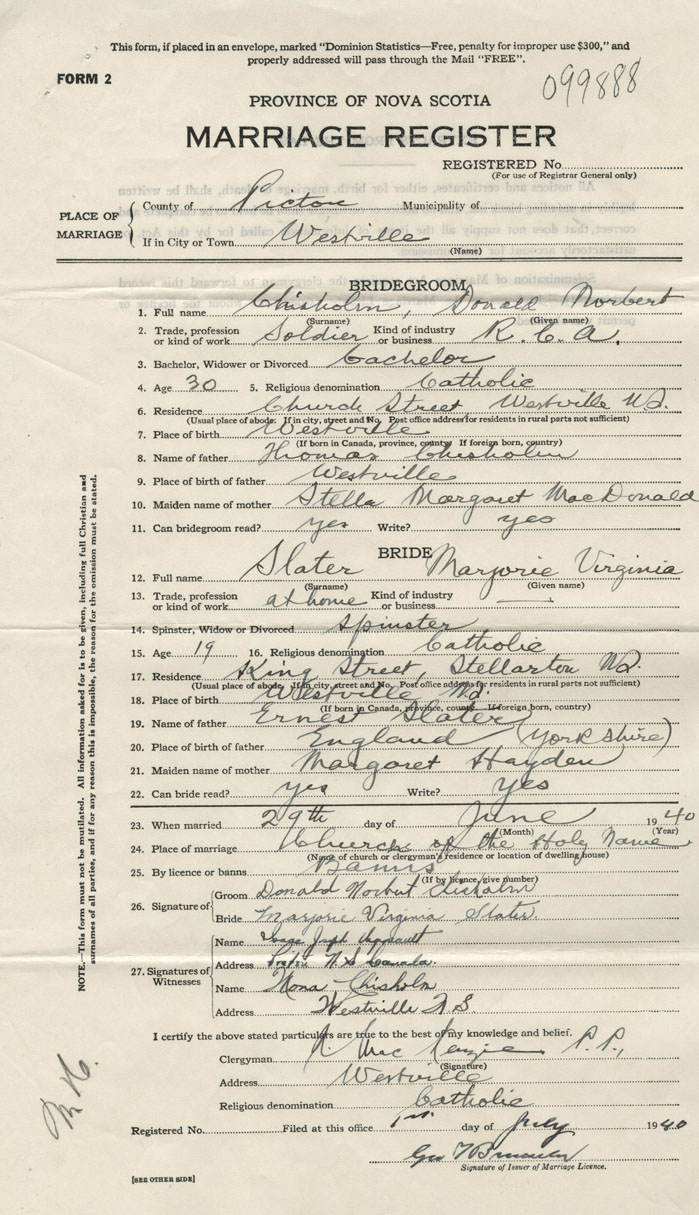 This form, if placed in an envelope, marked "Dominion Statistics—Free, penalty for improper use $300," and
properly addressed will pass through the Mail "FREE".
FORM 2
099888
PROVINCE OF NOVA SCOTIA
MARRIAGE REGISTER
REGISTERED No.
(For use of Registrar General only)
PLACE OF MARRIAGE
County of Pictou Municipality of
If in City or Town Westville
(Name)
BRIDEGROOM
1. Full name Chisholm, Donald Norbert
(Surname) (Given name)
2. Trade, profession or kind of work Soldier Kind of industry or business R.C.A.
3. Bachelor, Widower or Divorced Bachelor
4. Age 30 5. Religious denomination Catholic
6. Residence Church Street Westville N.S.
(Usual place of abode. If in city, street and No. Post office address for residents in rural parts not sufficient)
7. Place of birth Westville
(If born in Canada, province, county If foreign born, country)
8. Name of father Thomas Chisholm
9. Place of birth of father Westville
10. Maiden name of mother Stella Margaret MacDonald
11. Can bridegroom read? yes Write? yes
BRIDE
12. Full name Slater Marjorie Virginia
(Surname) (Given name)
13. Trade, profession or kind of work at home Kind of industry or business —
14. Spinster, Widow or Divorced Spinster
15. Age 19 16. Religious denomination Catholic
17. Residence King Street, Stellarton N.S.
(Usual place of abode. If in city, street and No. Post office address for residents in rural parts not sufficient)
18. Place of birth Westville N.S.
(If born in Canada, province, county If foreign born, country)
19. Name of father Ernest Slater
20. Place of birth of father England (Yorkshire)
21. Maiden name of mother Margaret Hayden
22. Can bride read? yes Write? yes
23. When married 29th day of June 1940
(Month) (Year)
24. Place of marriage Church of the Holy Name
(Name of church or clergyman's residence or location of dwelling house)
25. By licence or banns Banns
(If by licence, give number)
26. Signature of
Groom Donald Norbert Chisholm
Bride Marjorie Virginia Slater.
27. Signatures of Witnesses
Name
Address N.S. Canada.
Name Nona Chisholm
Address Westville N.S.
I certify the above stated particulars are true to the best of my knowledge and belief.
Clergyman R. MacKenzie P.P.,
(Signature)
Address Westville
Religious denomination Catholic
Registered No. Filed at this office 1st. day of July 1940
Signature of Issuer of Marriage Licence.
[SEE OTHER SIDE]
NOTE.—This form must not be mutilated. All information asked for is to be given, including full Christian and
surnames of all parties, and if for any reason this is impossible, the reason for the omission must be stated.